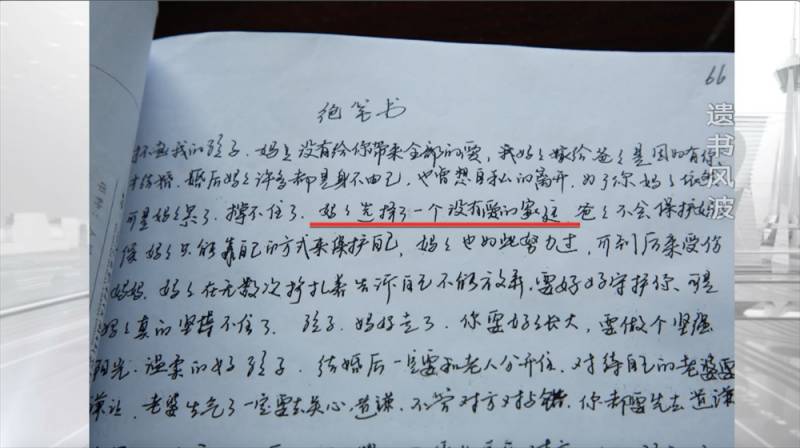 66
绝笔书
我的孩子.妈妈没有给你带来全部的爱,我妈妈嫁给爸爸是因为有你
才结婚.婚后妈妈许多都是身不由己,也曾想自私的离开,为了你妈妈
可是妈妈累了.撑不住了.妈妈选择了一个没有爱的家庭.爸爸不会保护妈
妈妈只能靠自己的方式来保护自己,妈妈也如此努力过,可到后来受伤
妈妈.妈妈在无数次挣扎着告诉自己不能放弃.要好好守护你.可是
妈妈真的坚持不住了.孩子.妈妈走了.你要好好长大,要做个坚强
阳光.温柔的好孩子.结婚后一定要和老人分开住.对待自己的老婆要
谦让.老婆生气了一定要去关心.道谦.不管对方对错.你都要先去道谦
遗书风波